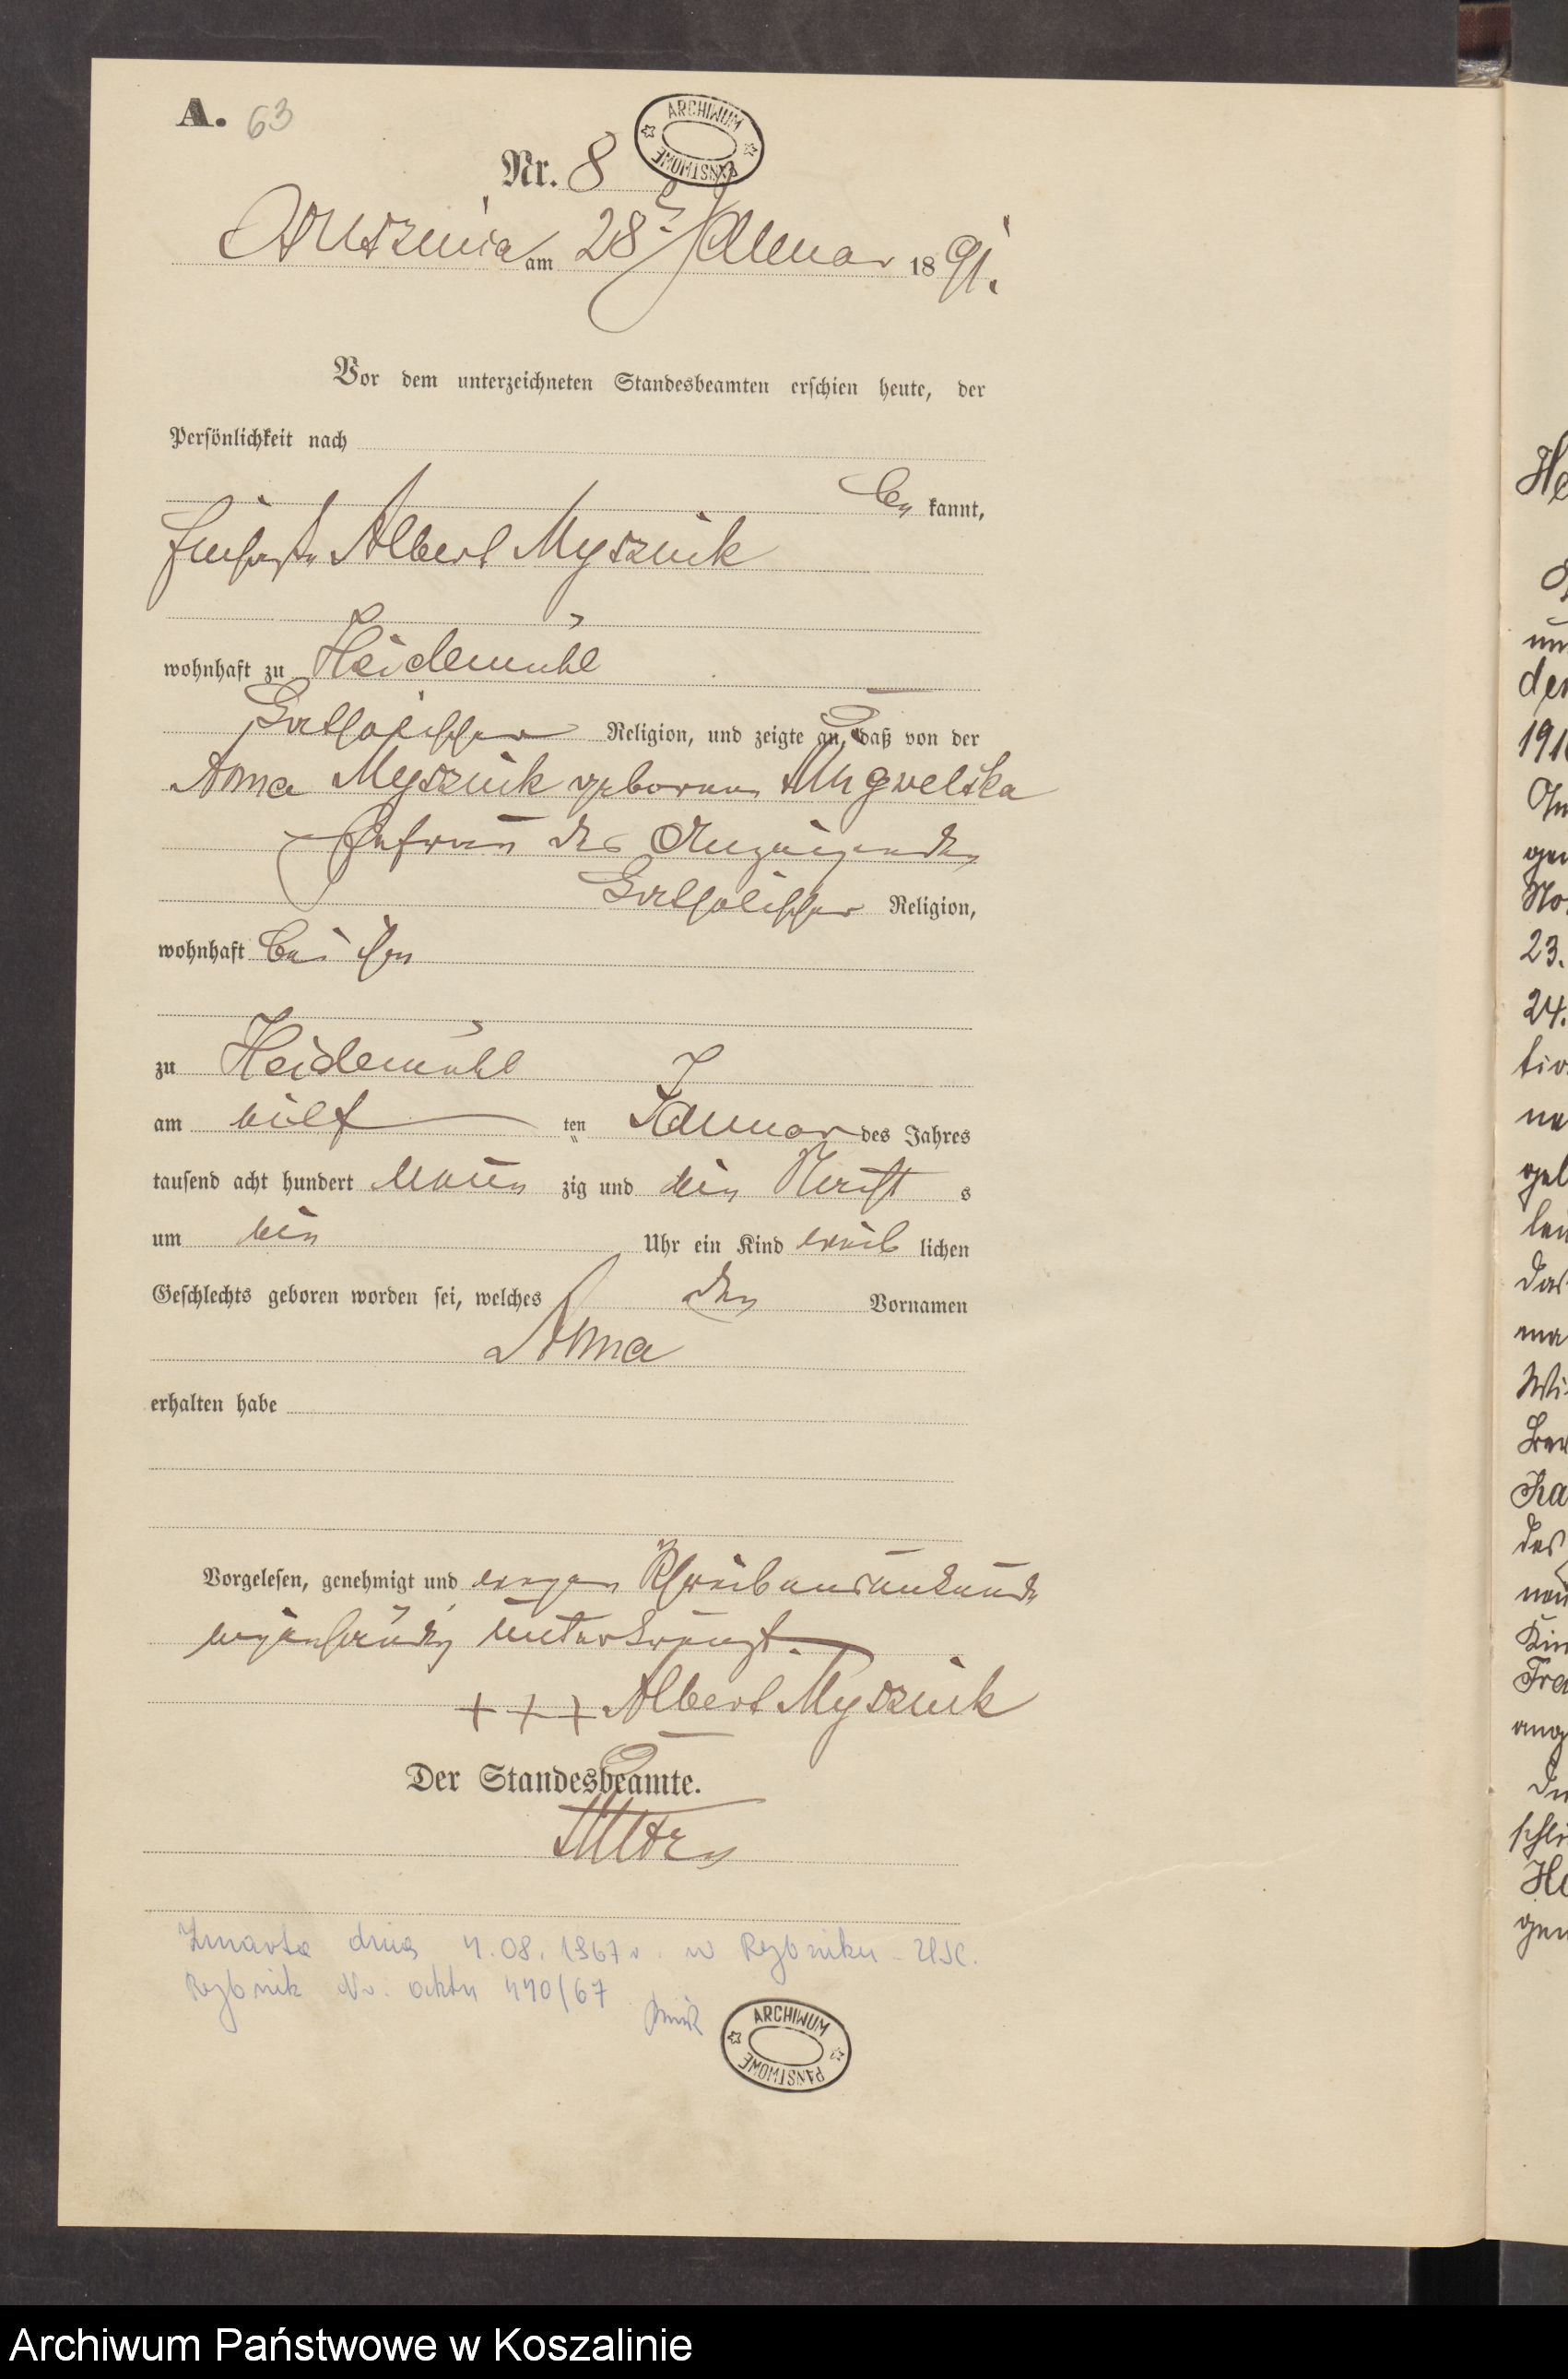 A. 63
ARCHIWUM PAŃSTWOWE
Nr. 8
am 28 Januar 1891.
Vor dem unterzeichneten Standesbeamten erschien heute, der
Persönlichkeit nach
be kannt,
Albert Mysznik
wohnhaft zu Heidemühl
katholischer Religion, und zeigte an, daß von der
Anna Mysznik geborenen
Ehefrau des Anzeigenden
katholischer Religion,
wohnhaft bei ihm
zu Heidemühl
am eilf ten Januar des Jahres
tausend acht hundert neun zig und ein s
um ein Uhr ein Kind weib lichen
Geschlechts geboren worden sei, welches den Vornamen
Anna
erhalten habe
Vorgelesen, genehmigt und wegen Schreibensunkunde
eigenhändig unterkreuzt.
+ + + Albert Mysznik
Der Standesbeamte.
Zmarła dnia 4.08.1967 r. w Rybniku - USC.
Rybnik Nr. aktu 440/67
ARCHIWUM PAŃSTWOWE
He
un
der
191
gen
No
23.
24.
ne
gel
das
ma
Wi
des
Kin
Fra
ang
schli
He
gen
Archiwum Państwowe w Koszalinie